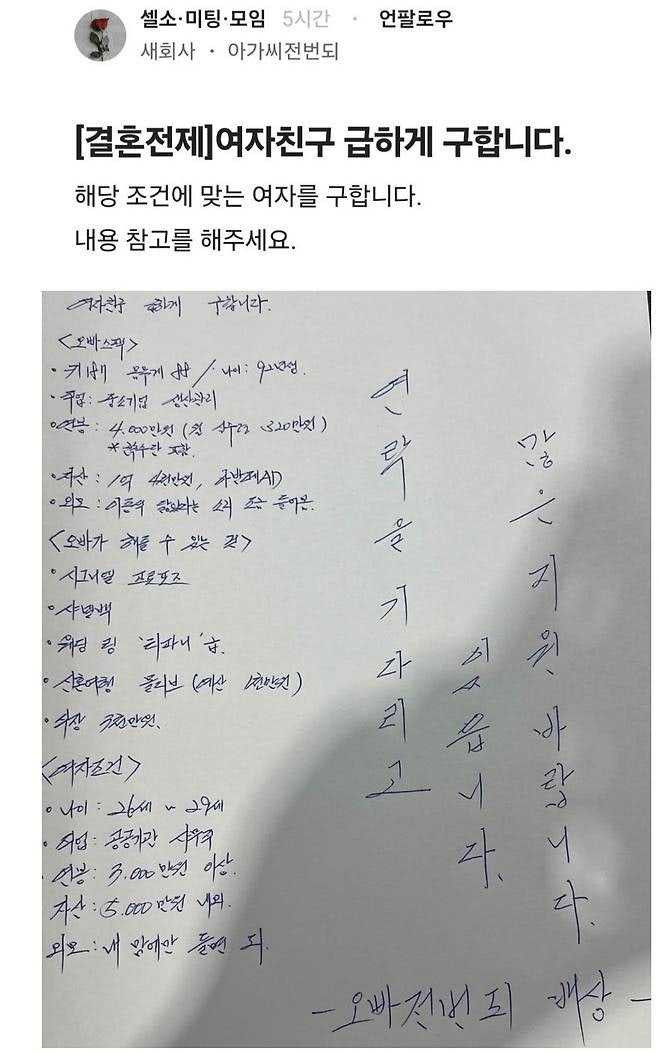 셀소·미팅·모임 5시간 · 언팔로우
새회사 · 아가씨전번되
[결혼전제]여자친구 급하게 구합니다.
해당 조건에 맞는 여자를 구합니다.
내용 참고를 해주세요.
여자친구 급하게 구합니다.
<오빠스펙>
몸무게 / 나이: 92년생.
직업: 중소기업 생산관리
연봉: 4.000만원 (월 실수령 320만원)
* 포함.
자산: 1억 4천만원,
외모: 이동욱 닮았다는 소리 조금 들어봄.
<오빠가 해줄 수 있는 것>
시그니엘 프로포즈
샤넬백
웨딩 링 '티파니'급.
신혼여행 몰디브 (예산 1천만원)
<여자조건>
나이: 26세 ~ 29세
직업: 공공기관 사무직
연봉: 3.000만원 이상.
자산: 5.000만원 내외.
외모: 내 맘에만 들면 돼.
연락을 기다리고
있읍니다.
많은 지원 바랍니다.
- 오빠전번되 배상 -